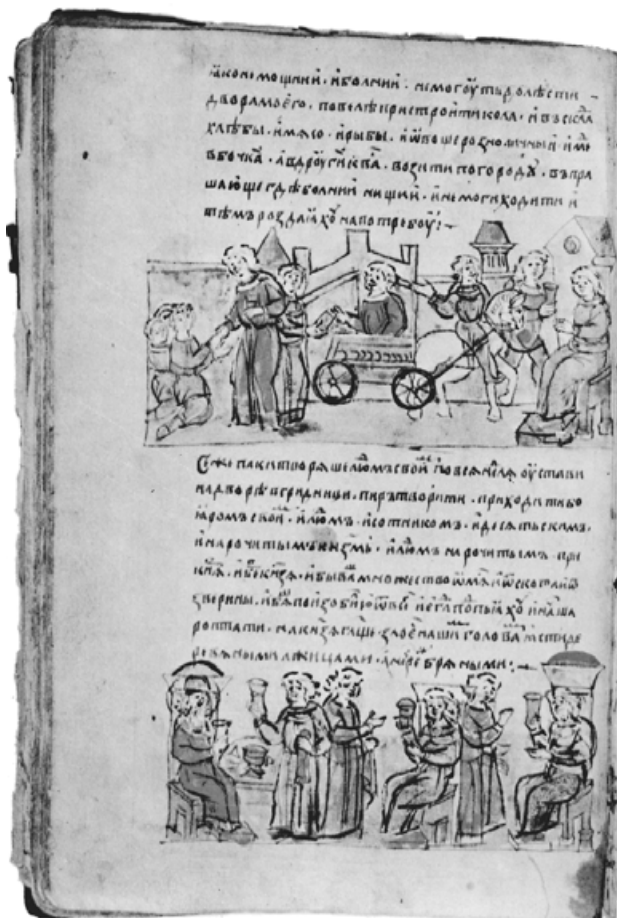 ꙗко немощнии. и болнии. не могоуть долѣсти
двора моего. повелѣ пристроити кола. и въскла
хлѣбы. и мѧсо. и рыбы. и ѡвощ розноличныи. и мⷣо
въ бочкаⷯ. а в дроугиⷯ квⷭа. возити по городꙋ. въпра
шающе гдѣ болнии нищии. и не моги ходити и
тѣмъ роздаꙗхꙋ на потребоу.
Се же паки творѧше людⷨемъ своиⷨ по всѧ неⷣлѧ оустави
на дворѣ в гридници. пиръ творити. приходити бо
ꙗромъ своиⷨ. и людⷨъ. и сотникомъ. и десѧтьскимъ.
и нарочитымъ. и людⷨъ нарочитымъ. при
кнѧⷥ. и беⷥ кнѧзѧ. и бываⷲ множество ѿ мѧⷭ. и ѿ скота и ѿ
звѣрины.
роптати. на кнѧзѧ гл҃ще. зло еⷭ нашиⷨ головаⷨ ꙗсти де
ревѧными лжицами. а не сребрѧными.